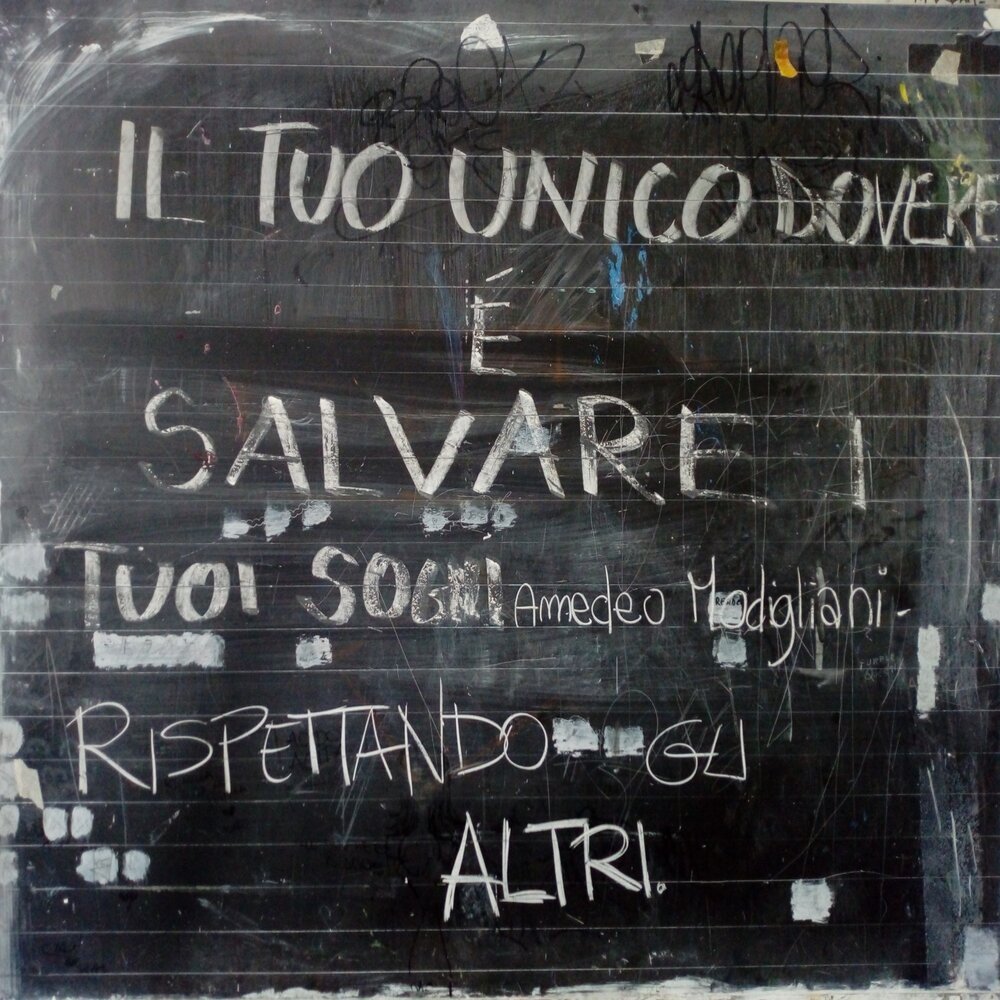 IL TUO UNICO DOVERE
É
SALVARE I
TUOI SOGNI Amedeo Modigliani -
RISPETTANDO GLI
ALTRI.